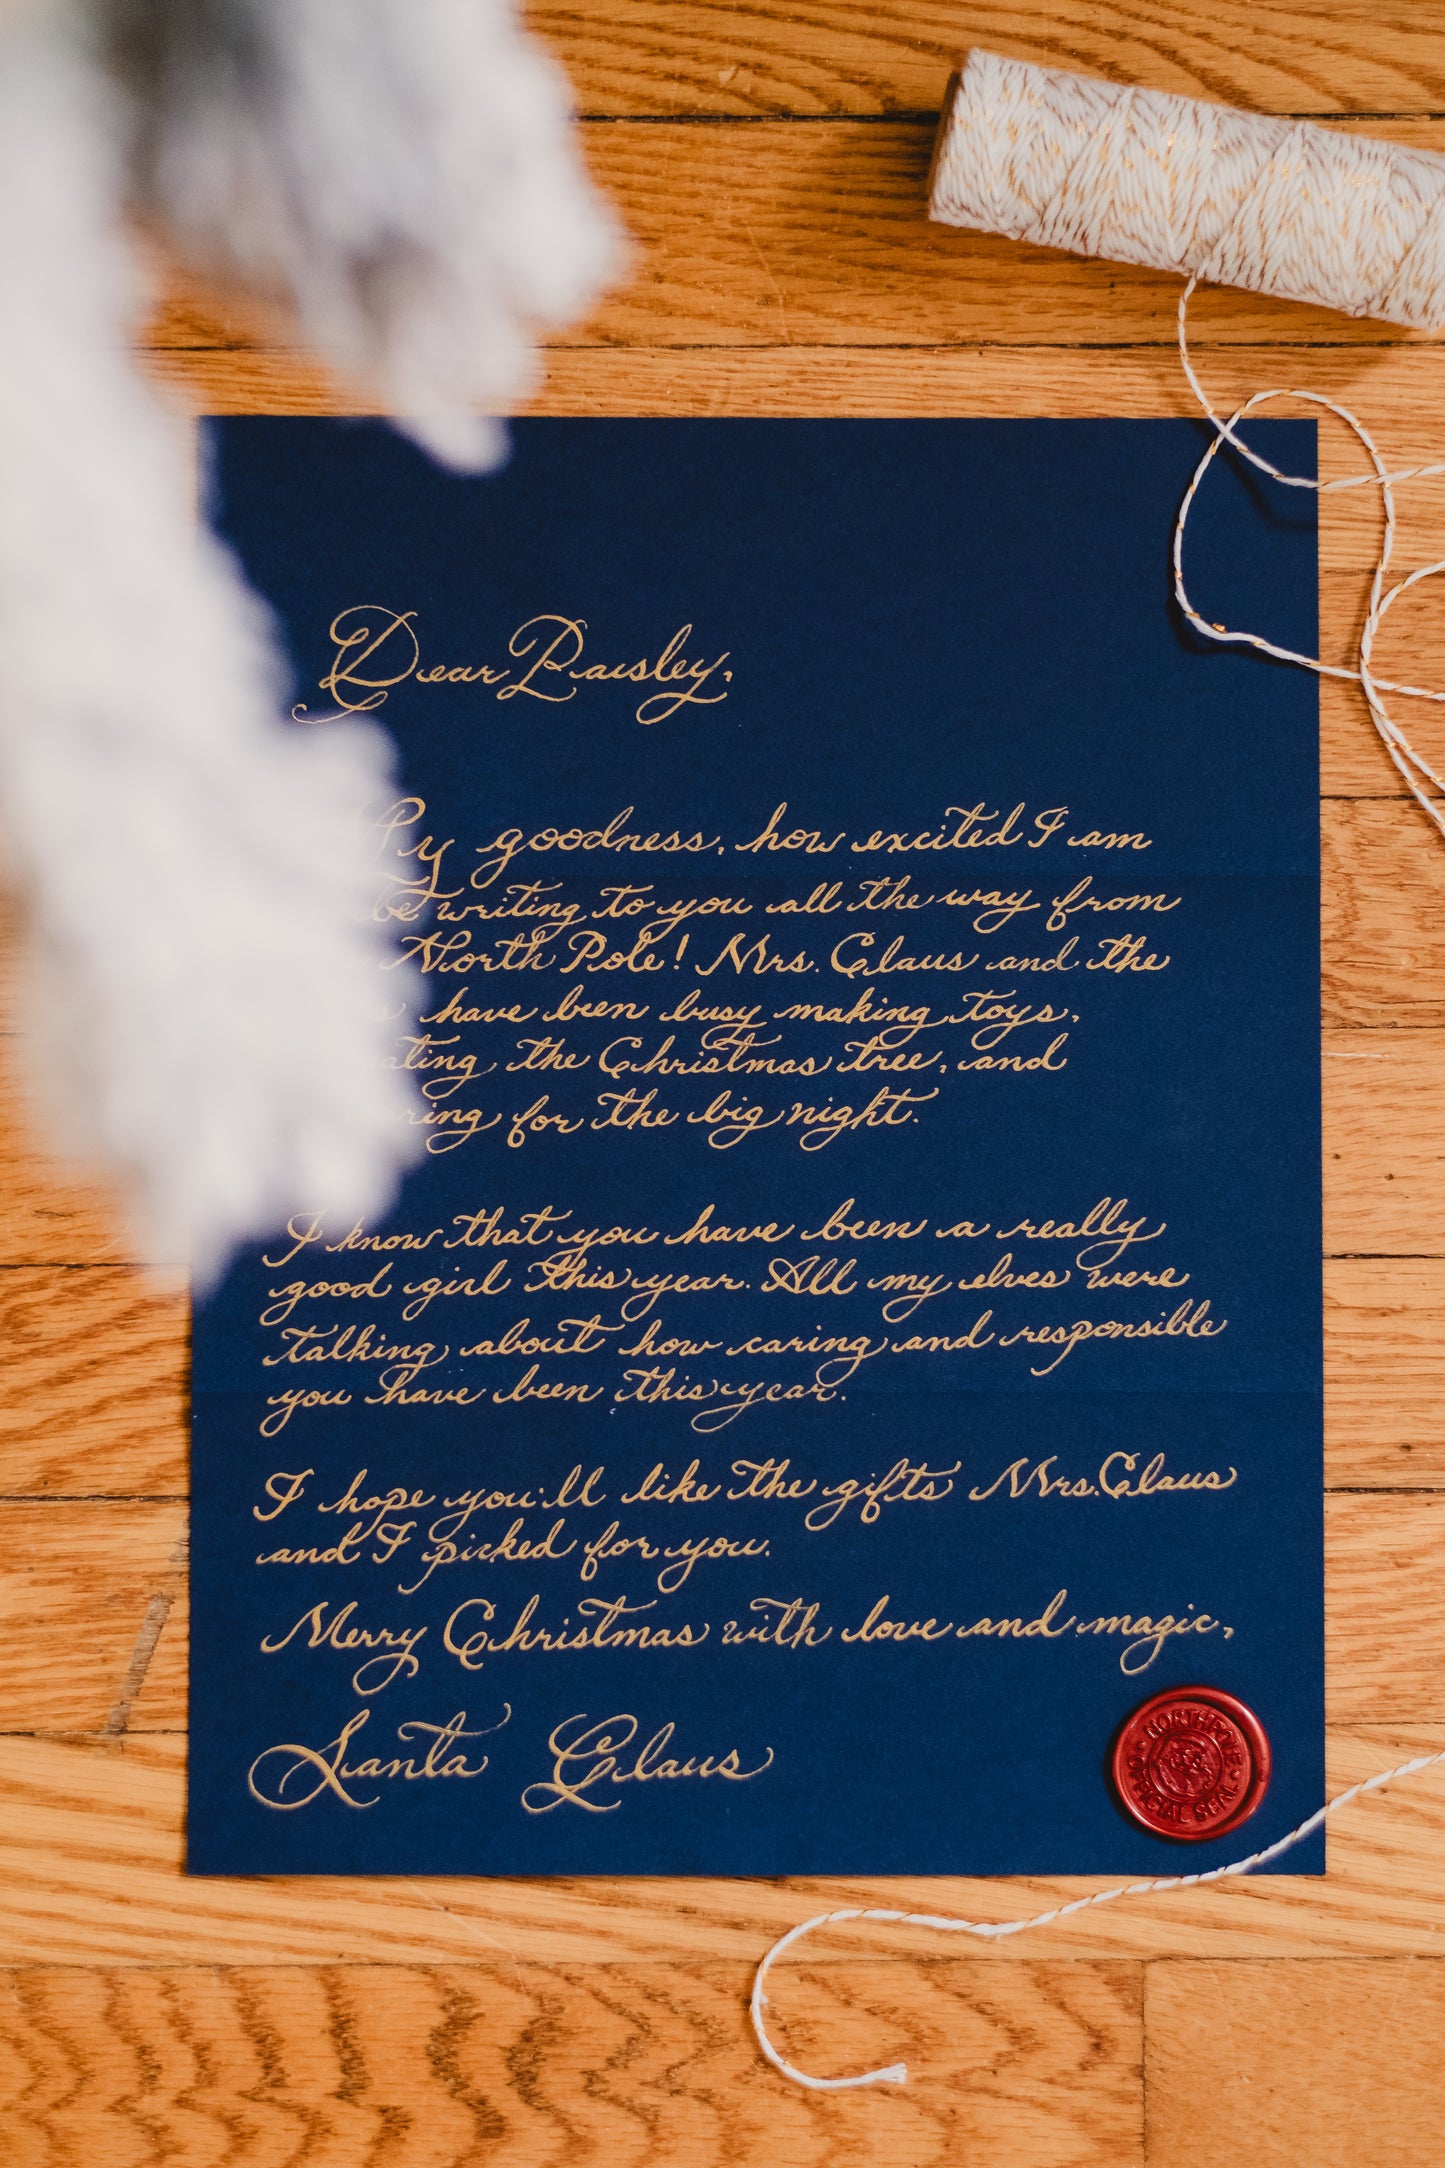 Dear Paisley,
My goodness, how excited I am
be writing to you all the way from
North Pole! Mrs. Claus and the
have been busy making toys,
the Christmas tree, and
for the big night.
I know that you have been a really
good girl this year. All my elves were
talking about how caring and responsible
you have been this year.
I hope you'll like the gifts Mrs. Claus
and I picked for you.
Merry Christmas with love and magic,
Santa Claus
NORTH POLE
OFFICIAL SEAL